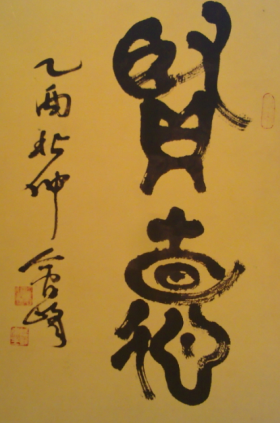 賢德
乙酉秋仲